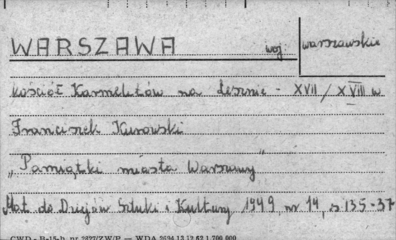 WARSZAWA woj. warszawskie
Kościół Karmelitów na Lesznie - XVII / XVIII w
Franciszek Kurowski
"Pamiątki miasta Warszawy"
Mat. do Dziejów Sztuki i Kultury 1949, nr 14, s 135-37
CWD - II-15-b nr WDA